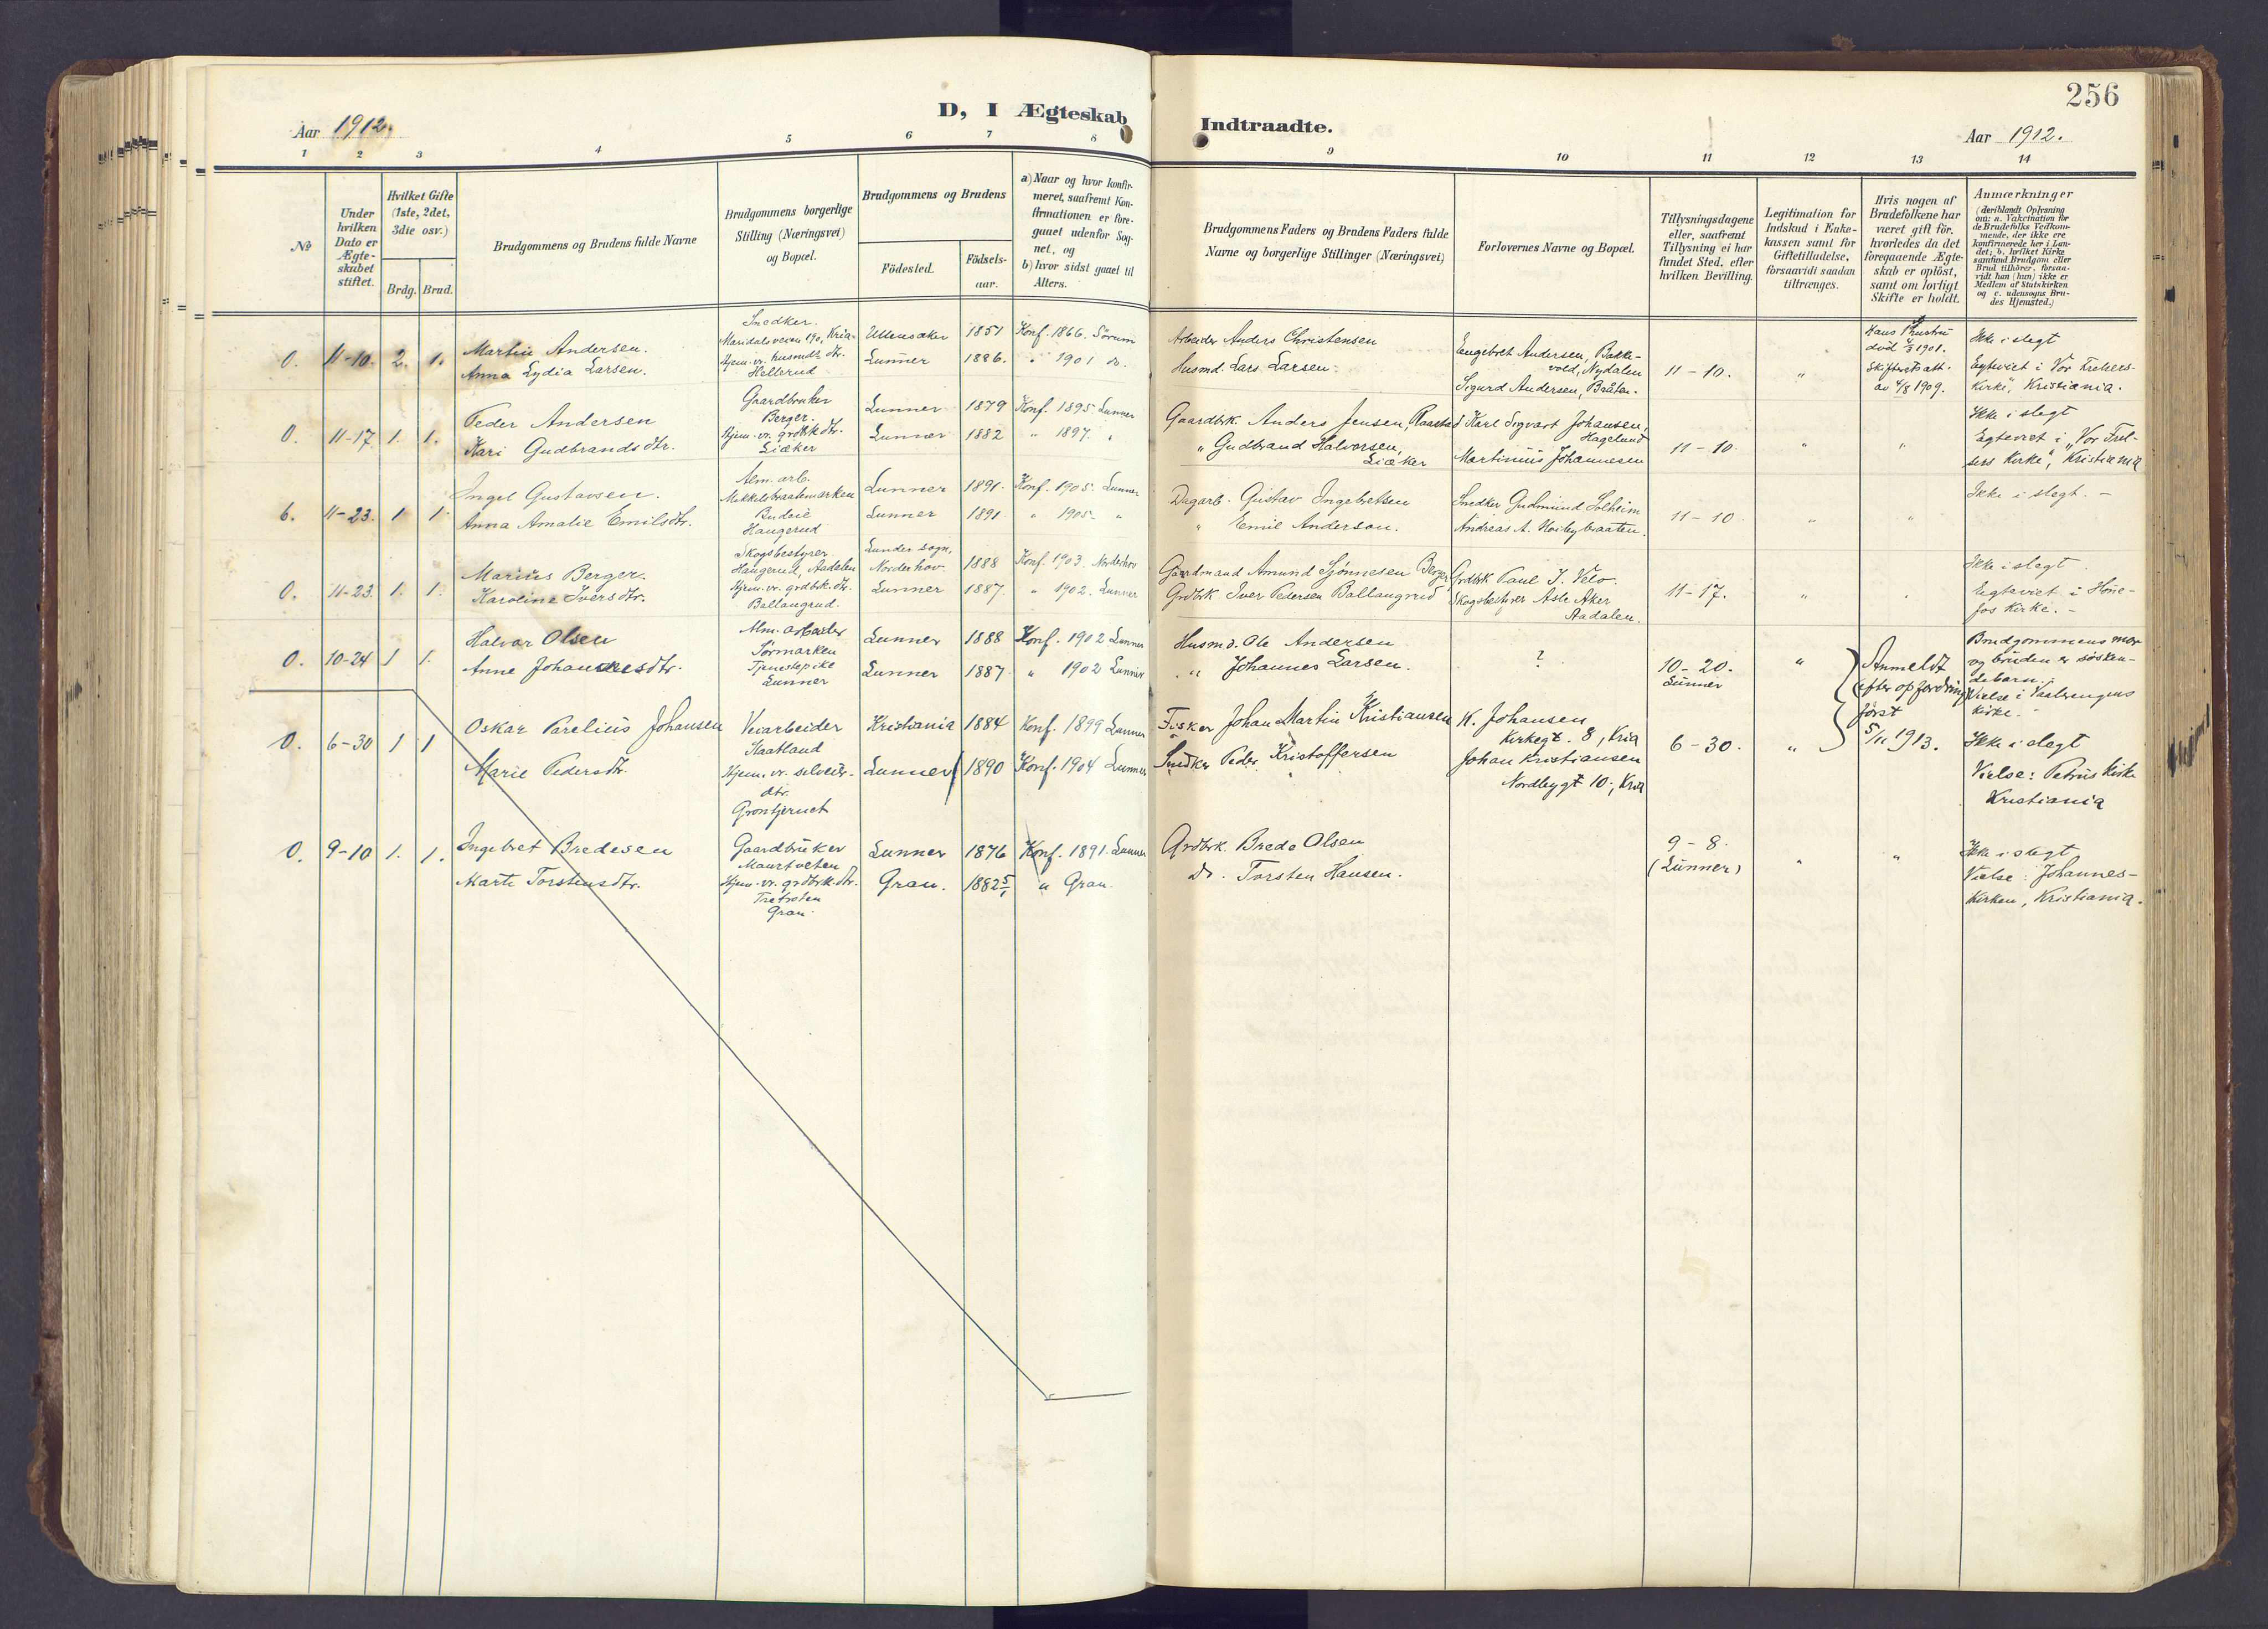 256
D, I Ægteskab Indtraadte.
Aar 1912.
Aar 1912.
1 2 3 4 5 6 7 8 9 10 11 12 13 14
No
Under
hvilken
Dato er
Ægte-
skabet
stiftet.
Hvilket Gifte
(1ste, 2det,
3die osv.)
Brdg. Brud.
Brudgommens og Brudens fulde Navne
Brudgommens borgerlige
Stilling (Næringsvei)
og Bopæl.
Brudgommens og Brudens
Födested.
Födsels-
aar.
a) Naar og hvor konfir-
meret, saafremt Kon-
firmationen er fore-
gaaet udenfor Sog-
net, og
b) hvor sidst gaaet til
Alters.
Brudgommens Faders og Brudens Faders fulde
Navne og borgerlige Stillinger (Næringsvei)
Forlovernes Navne og Bopæl.
Tillysningsdagene
eller, saafremt
Tillysning ei har
fundet Sted, efter
hvilken Bevilling.
Legitimation for
Indskud i Enke-
kassen samt for
Giftetilladelse,
forsaavidt saadan
tiltrænges.
Hvis nogen af
Brudefolkene har
været gift för,
hvorledes da det
foregaaende Ægte-
skab er oplöst,
samt om lovligt
Skifte er holdt.
Anmærkninger
(deriblandt Oplysning
om: a. Vakcination for
de Brudefolks Vedkom-
mende, der ikke ere
konfirmerede her i Lan-
det; b. hvilket Kirke
samfund Brudgom eller
Brud tilhörer, forsaa-
vidt han (hun) ikke er
Medlem af Statskirken
og c. udensogns Bru-
des Hjemsted.)
0. 11-10. 2. 1.
Martin Andersen.
Anna Lydia Larsen.
Snedker.
Maridalsveien 190, Kria.
Hjem. vr. husmds dtr.
Hellerud
Ullensaker 1851 Konf. 1866. Sörum
Lunner 1886. " 1901 do.
Arbeider Anders Christensen
Husmd Lars Larsen.
Engebret Andersen, Bakke-
vold, Nydalen
Sigurd Andersen, Bråten.
11-10. "
Hans 1 hustru
död 4/3 1901.
Skifterets att.
av 4/8 1909.
Ikke i slegt
Egteviet i Vor Frelsers-
kirke, Kristiania.
0. 11-17. 1. 1.
Peder Andersen
Kari Gudbrandsdtr.
Gaardbruker
Berger.
Hjem. vr. grdbk dtr.
Liæker
Lunner 1879 Konf. 1895. Lunner
Lunner 1882 " 1897. "
Gaardbrk. Anders Jensen, Raastad
" Gudbrand Halvorsen,
Liæker
Karl Sigvart Johansen,
Hagelund
Martinius Johannesen
11-10. " "
Ikke i slegt
Egteviet i "Vor Frel-
sers Kirke", Kristiania
6. 11-23. 1 1
Ingel Gustavsen.
Anna Amalie Emilsdtr.
Alm. arb.
Mikkelsbraatemarken
Budeie
Haugerud
Lunner 1891. Konf. 1905. Lunner
Lunner 1891. " 1905. "
Dagarb. Gustav Ingebretsen
" Emil Anderson.
Snedker Gudmund Solheim
Andreas A. Hoibybraaten.
11-10. " "
Ikke i slegt. -
0. 11-23. 1. 1.
Marius Berger.
Karoline Iversdtr.
Skogsbestyrer
Haugerud, Aadalen
Hjem. vr. grdbk. dtr.
Ballangrud.
Lunder sogn,
Norderhov. 1888 Konf. 1903. Norderhov
Lunner 1887. " 1902. Lunner
Gaardmand Amund Sjönnesen Berger
Grdbrk Iver Pedersen Ballangrud
Grdbk Paul I. Velo.
Skogbestyrer Asle Aker
Aadalen.
11-17. " "
Ikke i slegt.
Egteviet i Höne-
fos Kirke. -
0. 10-24 1 1.
Halvor Olsen
Anne Johannesdtr.
Alm. arbeider
Sörmarken
Tjenestepike
Lunner
Lunner 1888 Konf. 1902 Lunner
Lunner 1887 " 1902 Lunner
Husmd. Ole Andersen
" Johannes Larsen.
?
10-20.
Lunner
"
Anmeldt
efter opfordring
först
5/11 1913.
Brudgommens mor
og bruden er sösken-
debarn.
Vielse i Vaalerengens
kirke. -
0. 6-30 1 1
Oskar Parelius Johansen
Marie Pedersdtr.
Veiarbeider
Kaatland
Hjem. vr. selveier-
dtr.
Grontjernet
Kristiania 1884 Konf. 1899 Lunner
Lunner 1890 Konf. 1904 Lunner
Fisker Johan Martin Kristiansen
Snedker Peder Kristoffersen
K. Johansen
Kirkegt. 8, Kria
Johan Kristiansen
Nordbygt 10, Kria
6-30. "
Ikke i slegt
Vielse: Petrus kirke
Kristiania
0. 9-10 1. 1.
Ingebret Bredesen
Marte Torstensdtr.
Gaardbruker
Maurtveten
Hjem. vr. grdbrk. dtr.
Tretoten
Gran.
Lunner 1876 Konf. 1891. Lunner
Gran. 1882 5/1 " Gran.
Grdbrk. Brede Olsen
Do. Torsten Hansen.
9-8.
(Lunner)
" "
Ikke i slegt
Vielse: Johannes-
kirken, Kristiania.